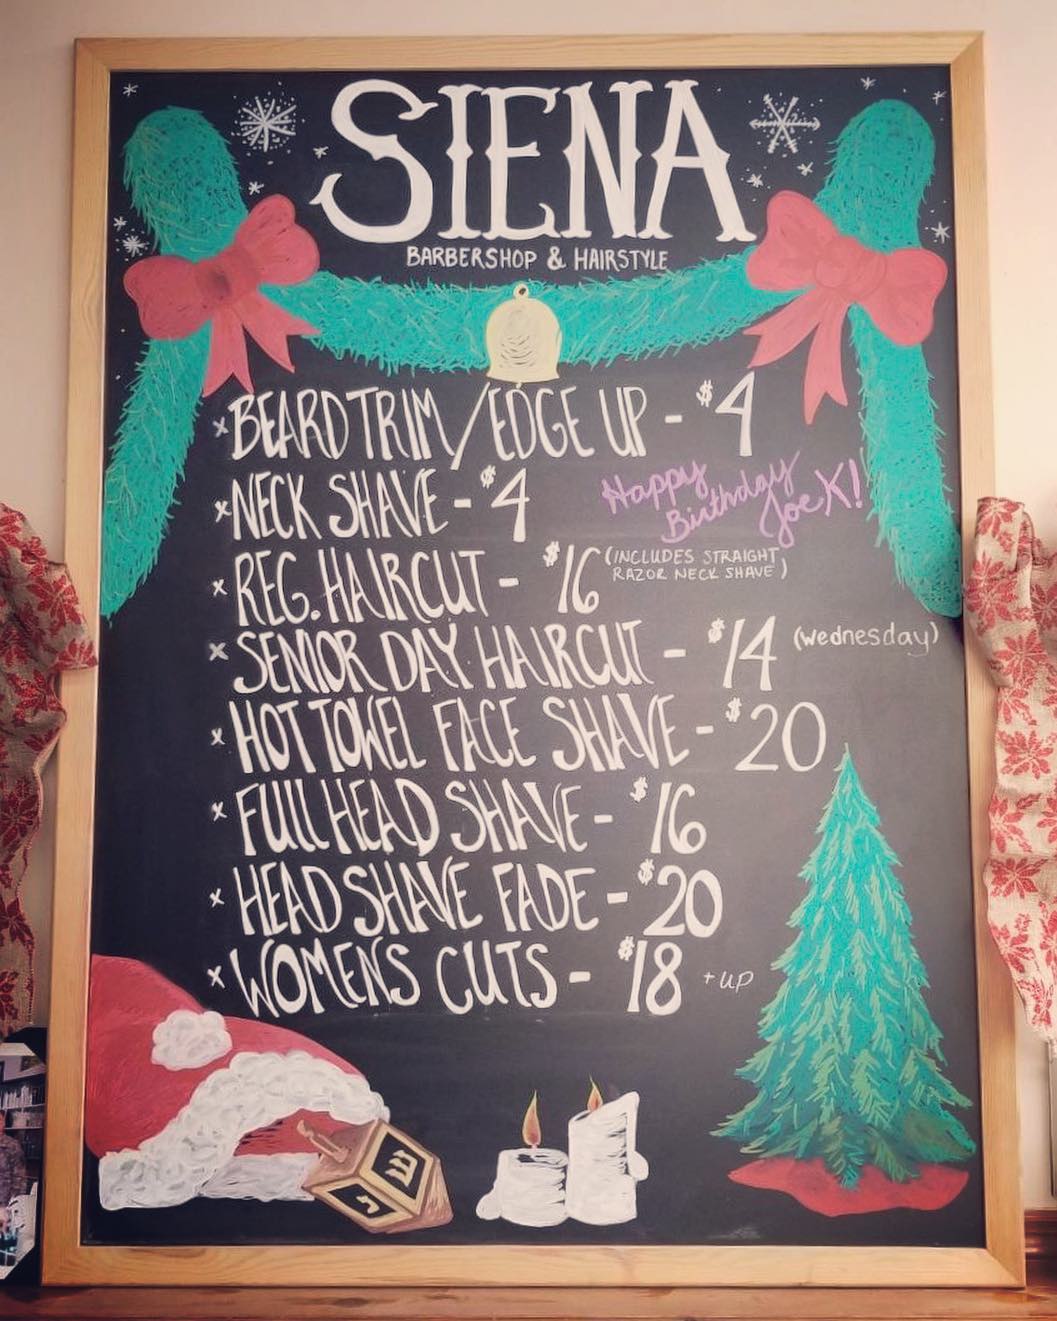 SIENA
BARBERSHOP & HAIRSTYLE
x BEARD TRIM/EDGE UP - $4
x NECK SHAVE - $4
Happy
Birthday
Joe K!
x REG. HAIRCUT - $16 (INCLUDES STRAIGHT
RAZOR NECK SHAVE)
x SENIOR DAY HAIRCUT - $14 (wednesday)
x HOT TOWEL FACE SHAVE - $20
x FULL HEAD SHAVE - $16
x HEAD SHAVE FADE - $20
x WOMENS CUTS - $18 + up
ש
נ